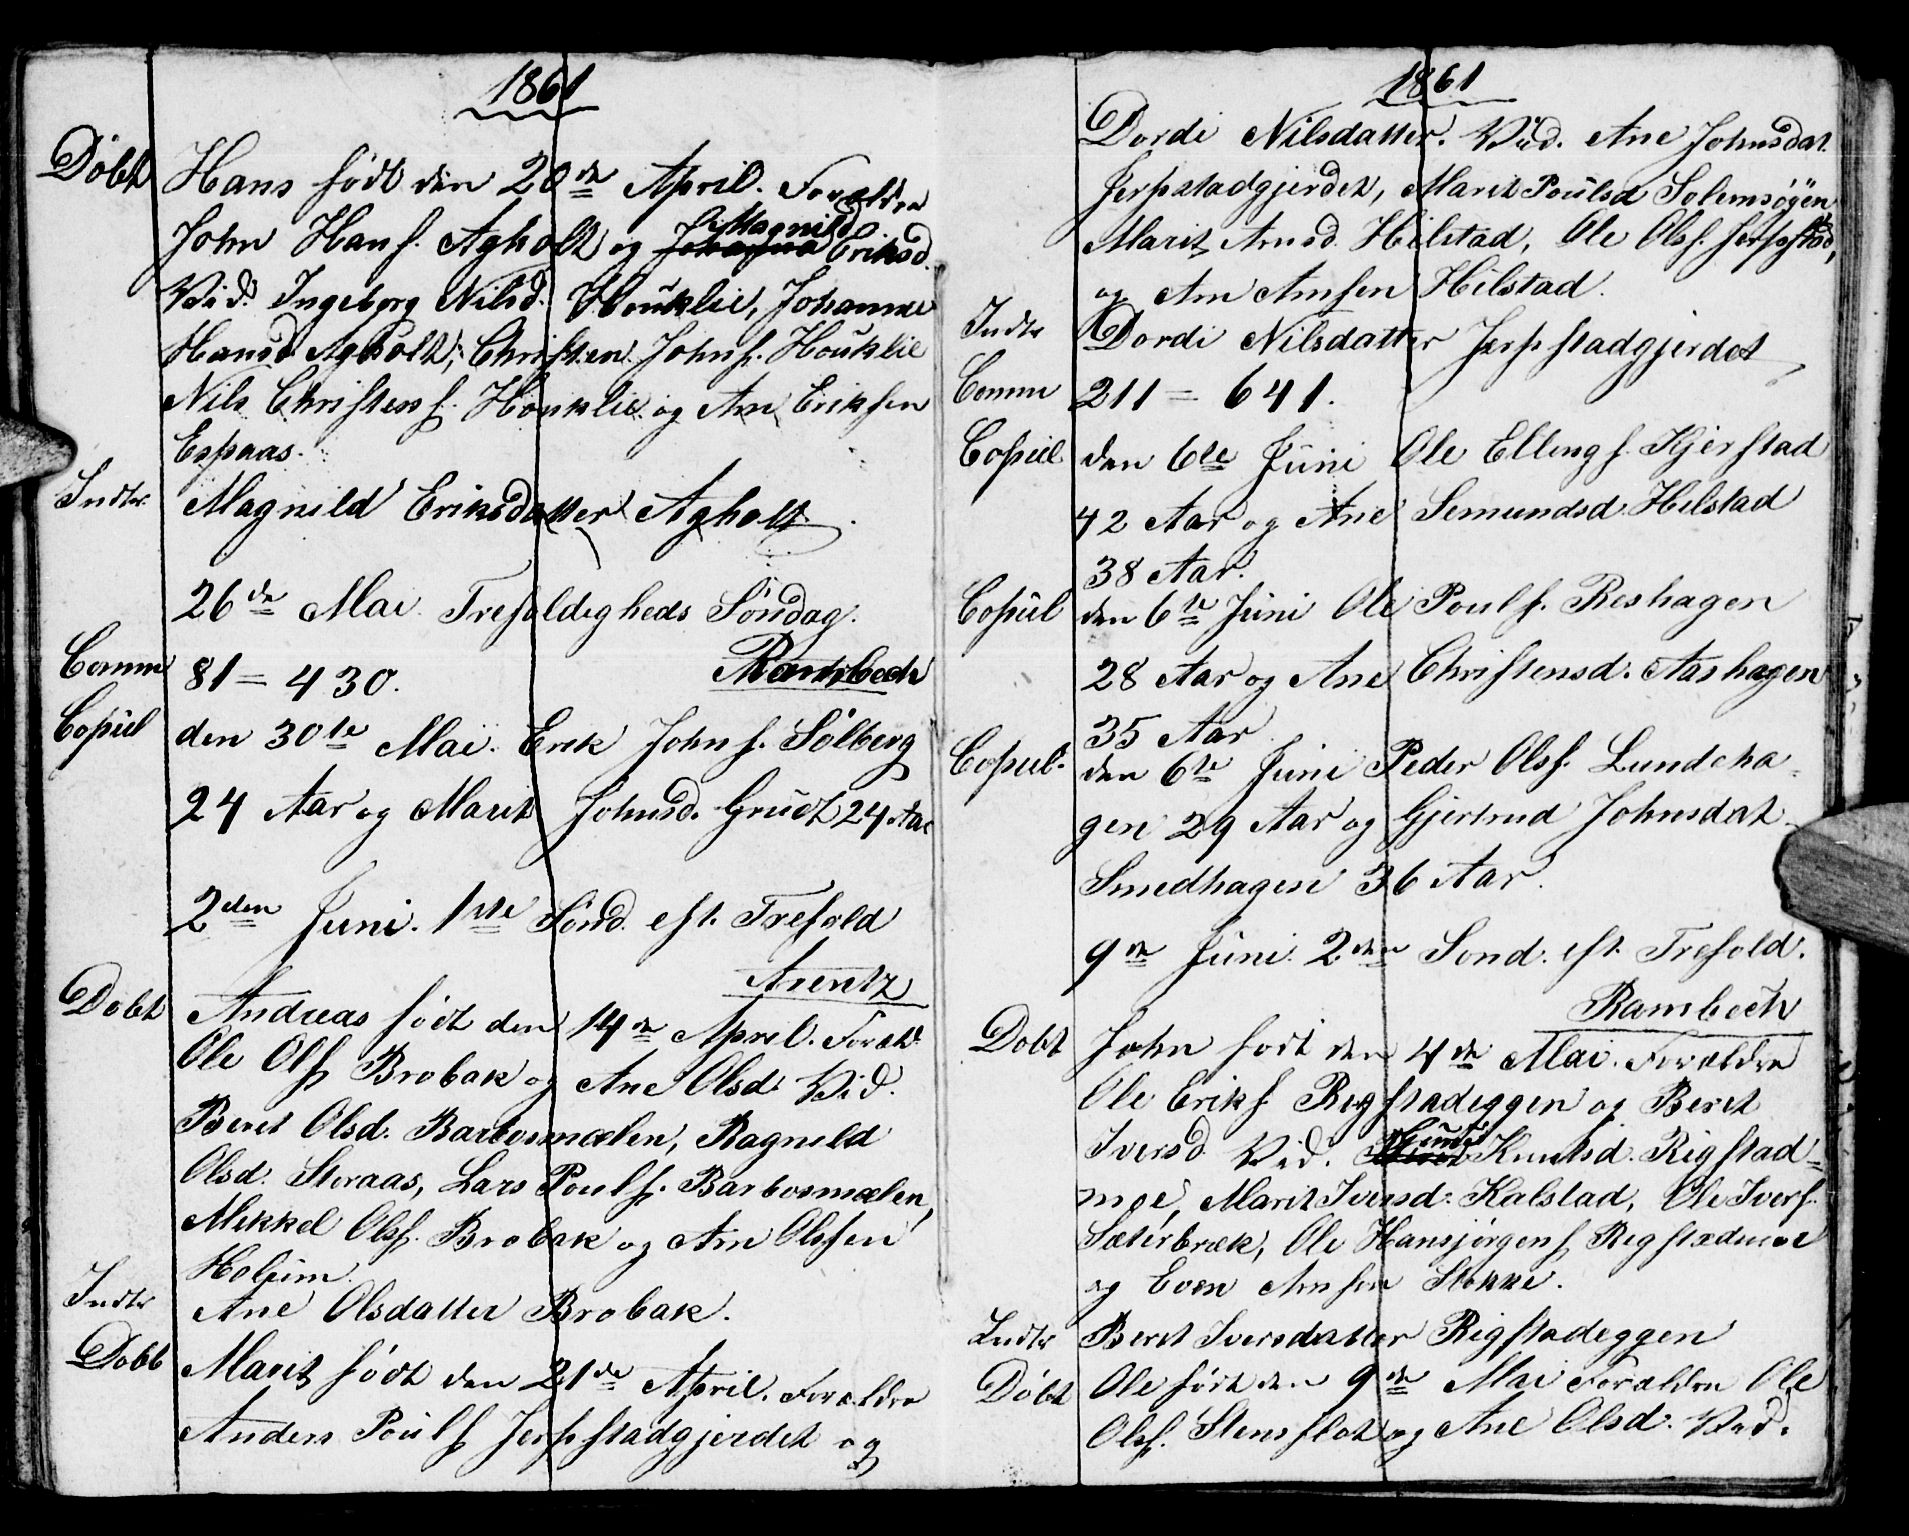 1861
Döbt Hans födt den 20de April. Forældre
John Hansf. Agholt og Magnild Eriksd.
Vid. Ingeborg Nilsd. Houklie, Johanne
Hansd. Agholt, Christen Johnf. Houklie
Nils Christensf. Houklie og Arn Eriksen
Espaas.
Indtr. Magnild Eriksdatter Agholt.
26de Mai Trefoldigheds Söndag.
Rambech
Comm 81 = 430.
Copul den 30te Mai. Erik Johnf. Sölberg
24 Aar og Marit Johnsd. Grudt 24 Aar
2den Juni. 1ste Sönd. eft. Trefold
Arentz
Döbt Andreas födt den 14de April. Foræld
Ole Olsf Brobak og Ane Olsd. Vid.
Beret Olsd. Barbosmælen, Ragnild
Olsd. Storaas, Lars Poulsf. Barbosmælen,
Mikkel Olsf. Brobak og Arn Olssen
Holum.
Indtr Ane Olsdatter Brobak.
Döbt Marit födt den 21de April. Forældre
Anders Poulsf Jerpstadgjerdet og
1861
Dordi Nilsdatter. Vid. Ane Johnsdat.
Jerpstadgjerdet, Marit Poulsd Solemsöyen
Marit Arnsd. Hilstad, Ole Olsf. Jerpstad,
og Arn Arnsen Hilstad.
Indtr Dordi Nilsdatter Jerpstadgjerdet
Comm 211 = 641.
Copul den 6te Juni Ole Ellingsf. Kjerstad
42 Aar og Ane Semundsd. Hilstad
38 Aar.
Copul den 6te Juni Ole Poulsf. Reshagen
28 Aar og Ane Christensd. Aashagen
35 Aar
Copul. den 6te Juni Peder Olsf. Lundeha-
gen 29 Aar og Gjertrud Johnsdat.
Smedhagen 36 Aar.
9de Juni. 2den Sond. eft. Trefold.
Rambech
Dobt John født den 4de Mai. Forældre
Ole Eriksf Rigstadeggen og Beret
Iversd. Vid. Knutsd. Rigstad=
moe, Marit Iversd. Kalstad, Ole Iversf.
Sæterbræk, Ole Hansjörgensf Rigstadmoe
og Even Arnsen Stokke.
Indtr Beret Iversdatter Rigstadeggen
Döbt Ole født den 9de Mai Forældre Ole
Olsf. Stensflot og Ane Olsd. Vid.